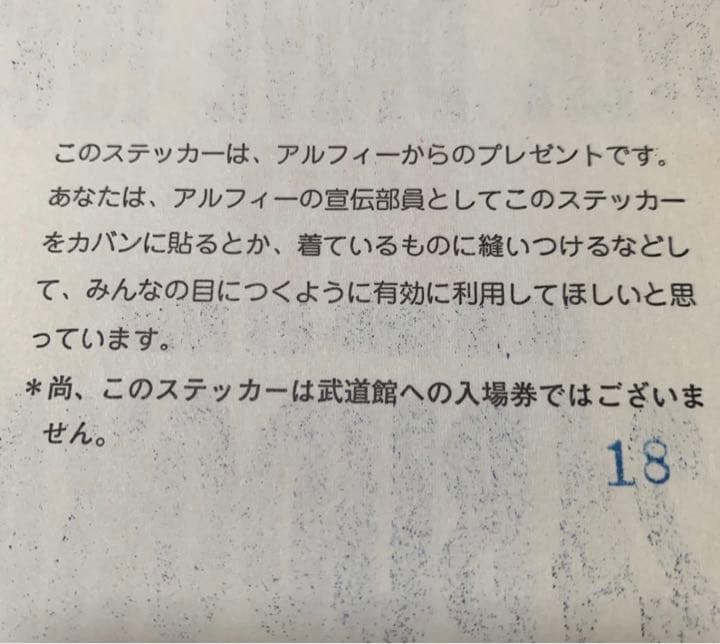 このステッカーは、アルフィーからのプレゼントです。
あなたは、アルフィーの宣伝部員としてこのステッカー
をカバンに貼るとか、着ているものに縫いつけるなどし
て、みんなの目につくように有効に利用してほしいと思
っています。
*尚、このステッカーは武道館への入場券ではございま
せん。
18